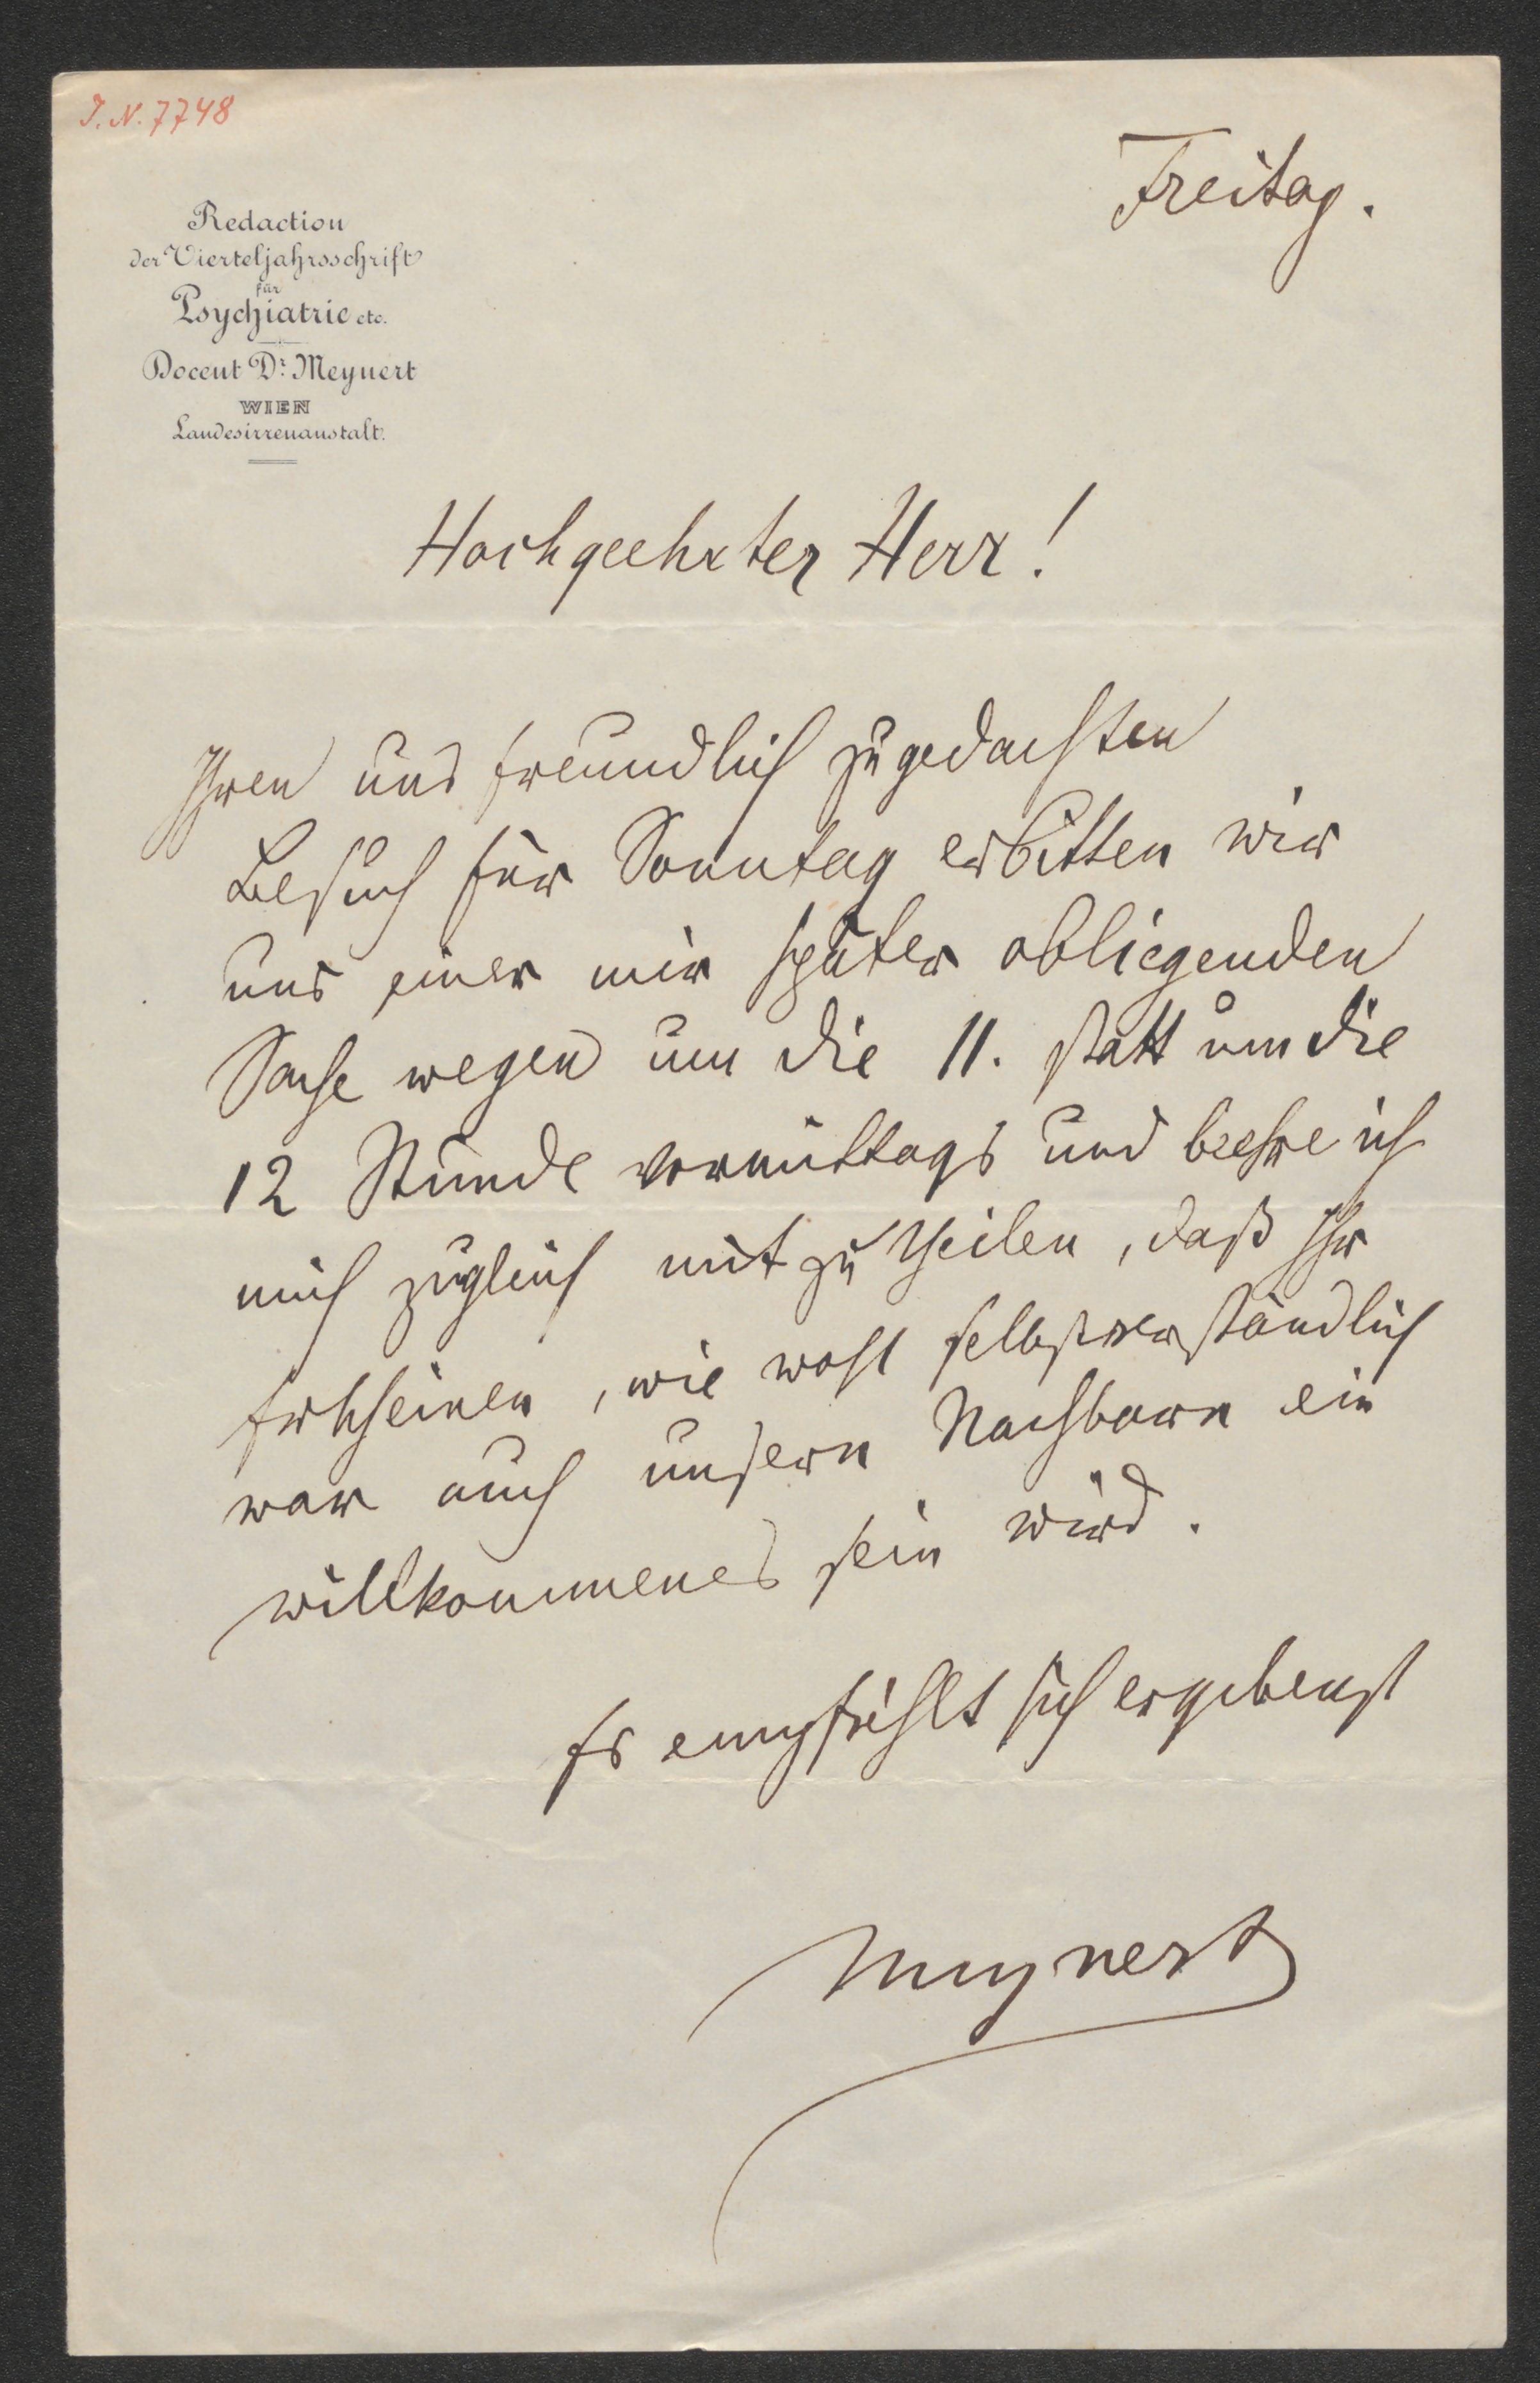 J. N. 7748
Freitag.
Redaction
der Vierteljahrsschrift
für
Psychiatrie etc.
Docent Dr. Meynert
WIEN
Landesirrenanstalt.
Hochgeehrter Herr!
Ihren uns freundlich zugedachten
Besuch für Sonntag erbitten wir
uns einer mir später obliegenden
Sache wegen um die 11. statt um die
12 Stunde vormittags und beehre ich
mich zugleich mit zu theilen, daß Ihr
Erscheinen, wie wohl selbstverständlich
war auch unsern Nachbarn ein
willkommenes sein wird.
Es empfiehlt sich ergebenst
Meynert